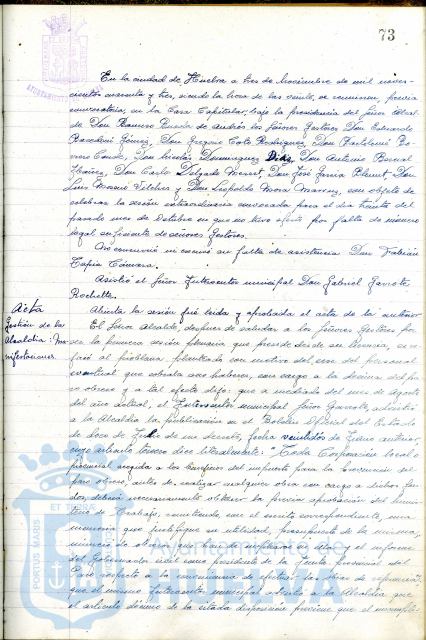 73
En la ciudad de Huelva a tres de Noviembre de mil nove-
cientos cuarenta y tres, siendo la hora de las veinte, se reunieron, previa
convocatoria, en la Casa Capitular, bajo la presidencia del Señor Alcal-
de Don los Señores Gestores Don Eduardo
Gómez, Don Coto Rodríguez, Don Bartolomé
Conde, Don Nicolás Dominguez Díaz, Don Antonio Bernal
Ibañez, Don Carlos Delgado Don José García Don
Luis y Don Leopoldo Mora con objeto de
celebrar la sesión extraordinaria convocada para el día treinta del
pasado mes de Octubre en que no tuvo efecto por falta de número
legal suficiente de señores Gestores.
No concurrió ni excusó su falta de asistencia Don Fabián
Tapia Cámara.
Asistió el Señor Interventor municipal Don Gabriel Garrote
Rochette.
Acta
Abierta la sesión fué leida y aprobada el acta de la anterior
Gestión de la
Alcaldía: Ma-
nifestaciones.
El Señor Alcalde, despues de saludar a los Señores Gestores por
ser la primera sesión plenaria que preside desde su licencia, se re-
firió al problema planteado con motivo del del personal
eventual que cobraba sus haberes, con cargo a la décima del pa-
ro obrero y a tal efecto dijo: que a mediados del mes de Agosto
del año actual, el Interventor municipal Señor Garrote, advirtió
a la Alcaldía la publicación en el Boletín Oficial del Estado
de doce de Julio de un decreto, fecha veintidos de Junio anterior,
cuyo artículo tercero dice literalmente: "Toda Corporación local o
provincial acogida a los beneficios del impuesto para la prevención del
paro obrero, antes de realizar cualquier obra con cargo a dichos fon-
dos, deberá necesariamente obtener la previa aprobación del Minis-
terio de Trabajo, remitiendo, con el escrito correspondiente, una
memoria que justifique su utilidad, presupuesto de la misma,
número de obreros que han de emplearse en ella y el informe
del Gobernador civil como presidente de la Junta provincial del
Paro respecto a la conveniencia de efectuar las obras de referencia";
que el mismo Interventor municipal advirtió a la Alcaldía que
el artículo décimo de la citada disposición previene que el incumpli-